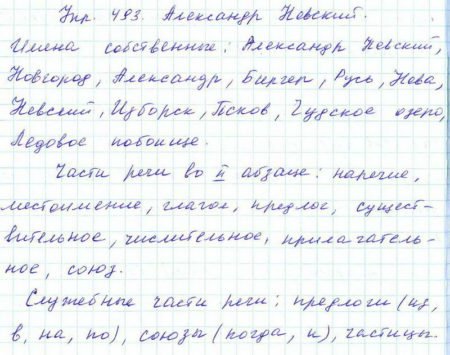 Упр. 493. Александр Невский.
Имена собственные: Александр Невский,
Новгород, Александр, Биргер, Русь, Нева,
Невский, Изборск, Псков, Чудское озеро,
Ледовое побоище.
Части речи во II абзаце: наречие,
местоимение, глагол, предлог, сущест-
вительное, числительное, прилагатель-
ное, союз.
Служебные части речи: предлоги (из,
в, на, по), союзы (когда, и), частицы.